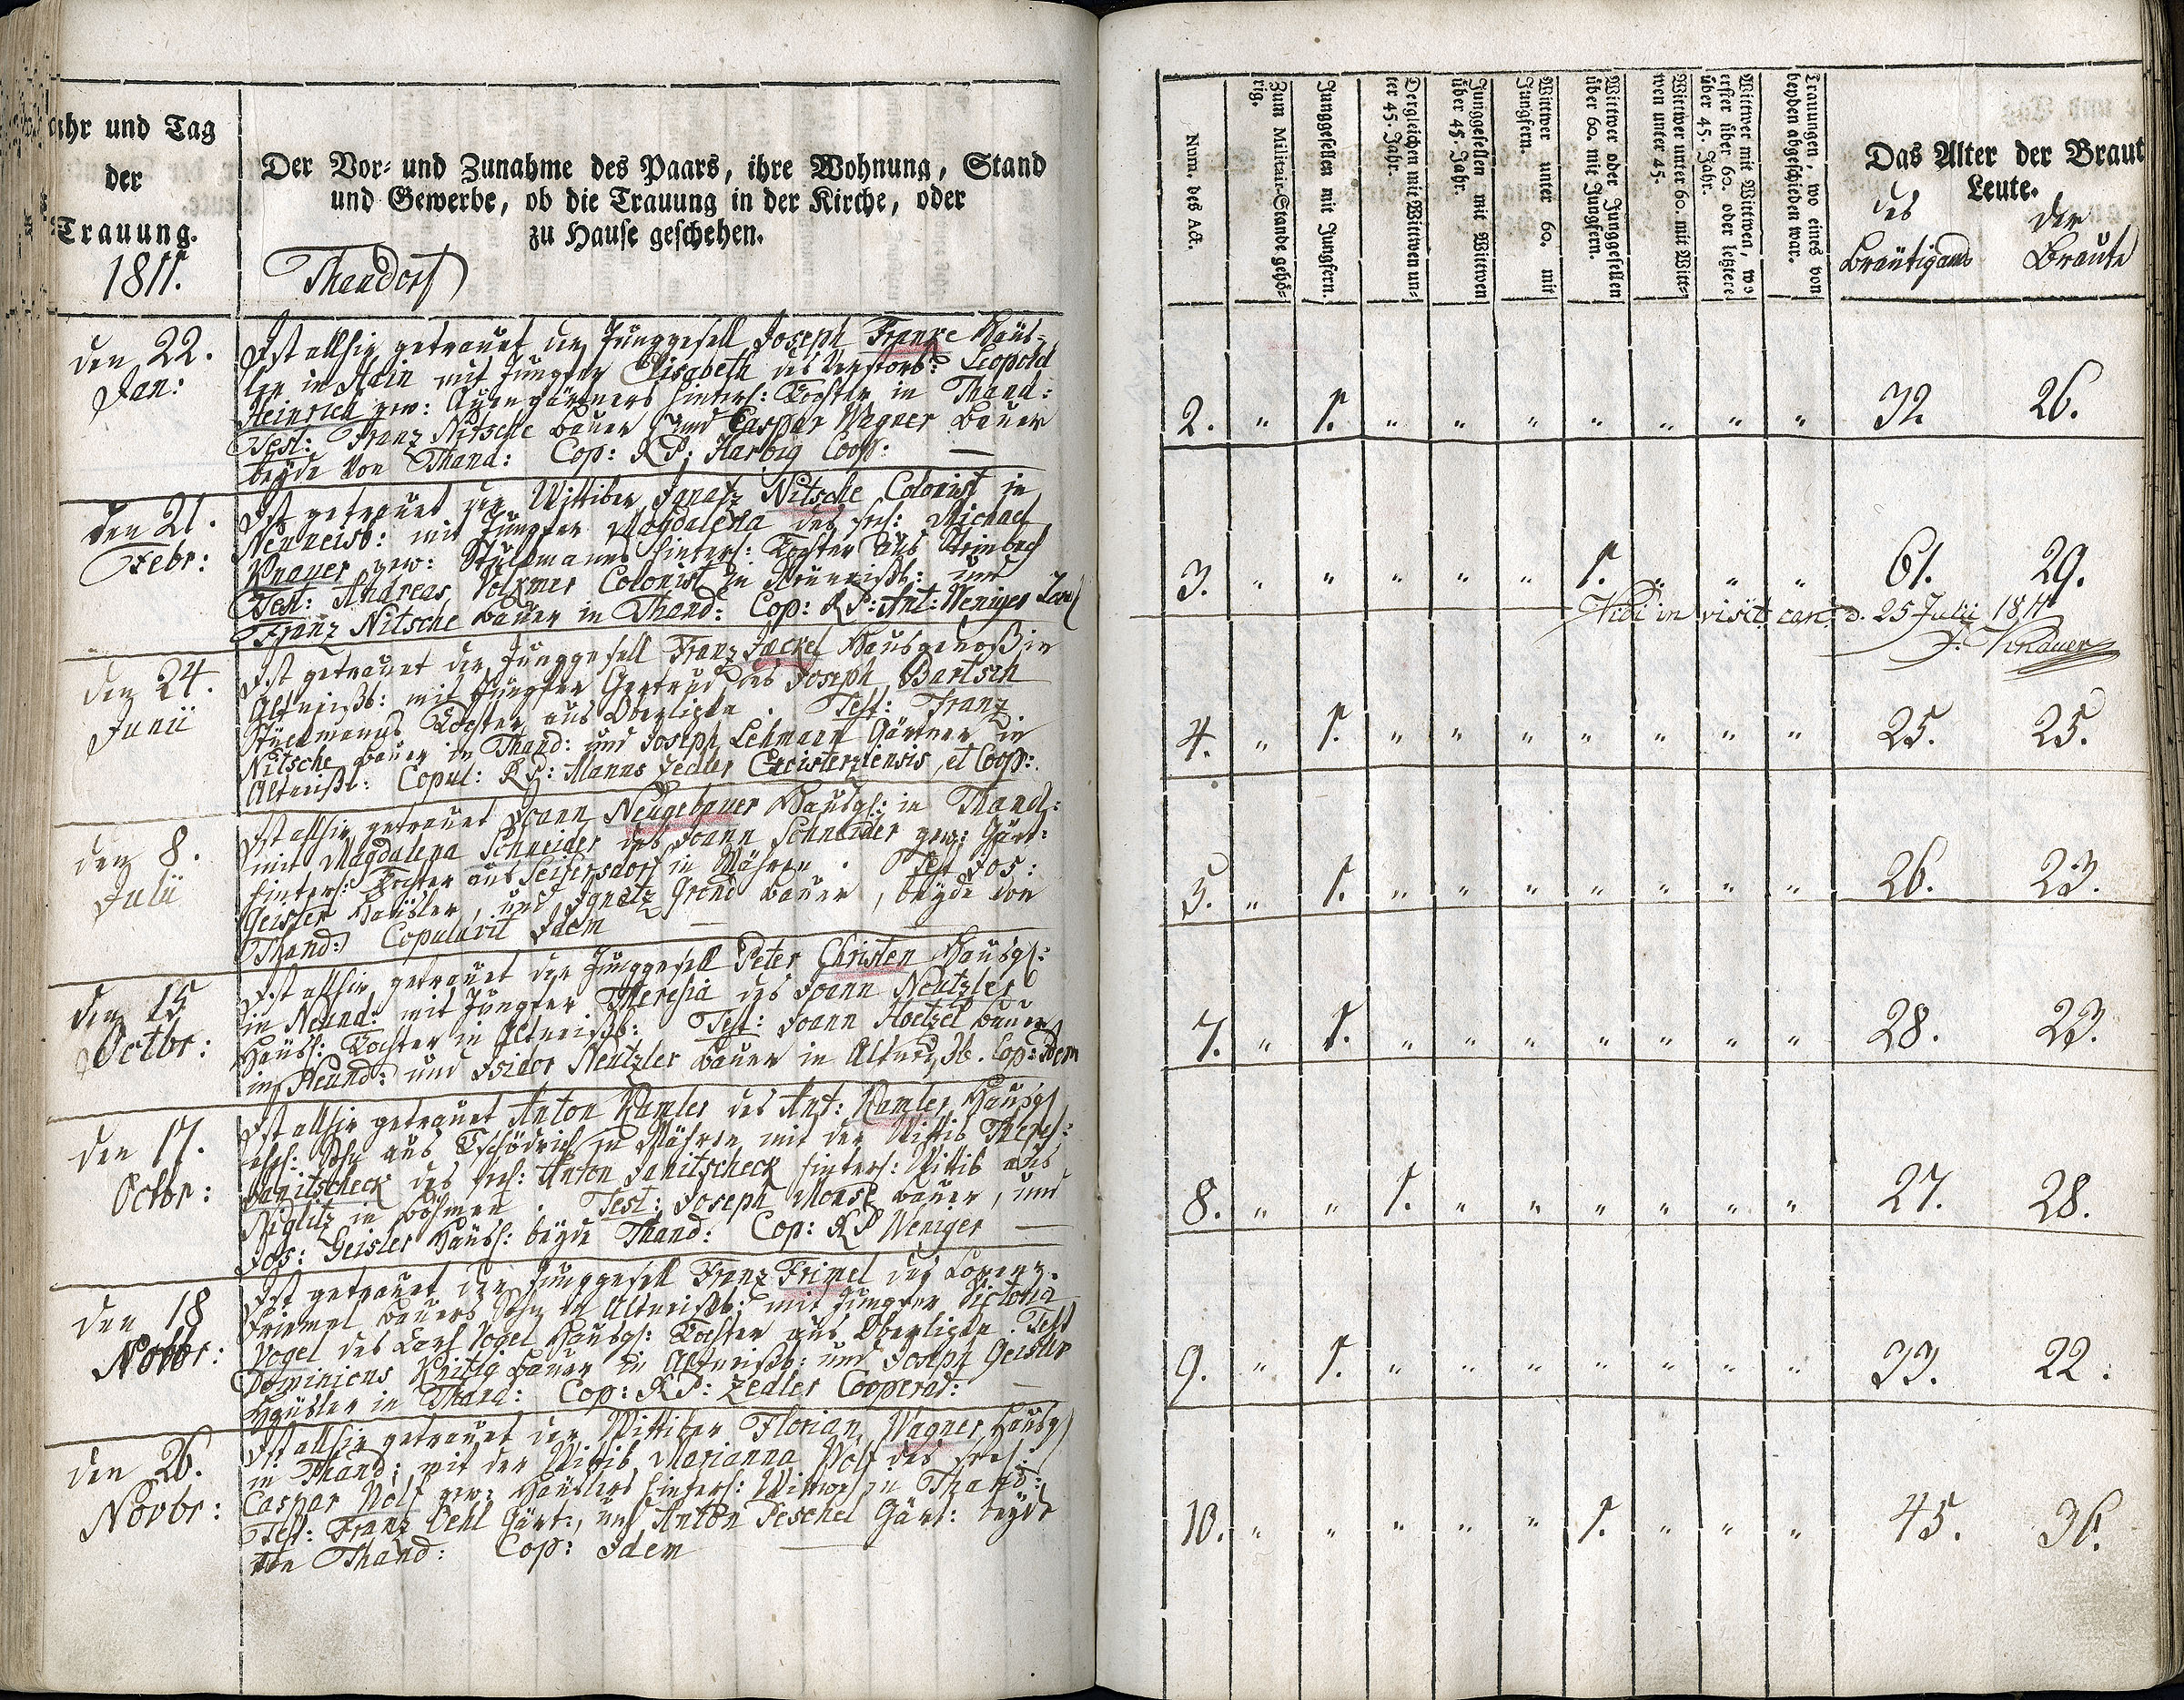 Jahr und Tag
der
Trauung.
1811.
Der Vor- und Zunahme des Paars, ihre Wohnung, Stand
und Gewerbe, ob die Trauung in der Kirche, oder
zu Hause geschehen.
Thandorf
den 22.
Jan:
Ist allhie getrauet der Junggesell Joseph Franke Häus-
ler in Hain mit Jungfer Elisabeth des verstorb: Leopold
Heinrich gew: Auengärtners hinterl: Tochter in Thand:
Test: Franz Nitsche Bauer und Caspar Wagner Bauer
beyde von Thand: Cop: RP: Harbig Coop:
den 21.
Febr:
Ist getrauet der Wittiber Ignatz Nitsche Colonist in
mit Jungfer Magdalena des sel: Michael
Knauer gew: hinterl: Tochter aus
Test: Andreas Volkmer Colonist in und
Franz Nitsche Bauer in Thand: Cop: RP: Ant: Weniger
den 24.
Junii
Ist getrauet der Junggesell Franz Jäckel Hausgenoß in
Altneißb: mit Jungfer Gertrud des Joseph Bartsch
Stückmanns Tochter aus Oberlipka. Test: Franz
Nitsche Bauer in Thand: und Joseph Lehmann Gärtner in
Altneißb: Copul: RP: Zedler et Coop:
den 8.
Julii
Ist allhie getrauet Joann Neugebauer Hausgl: in Thand:
mit Magdalena Schneider des Joann Schneider gew: Gärt:
hinterl: Tochter aus Seifersdorf in Mähren. Test Jos:
Geisler Häusler, und Ignatz Grond Bauer, beyde von
Thand: Copulavit Idem
den 15
Octbr:
Ist allhie getrauet der Junggesell Peter Christen Hausgl:
in Neund: mit Jungfer Theresia des Joann Nentzler
Häusl: Tochter in Altneißb: Test: Joann Hoetzel Bauer
in Neund: und Isidor Nentzler Bauer in Altneißb. Cop: Idem
den 17.
Octbr:
Ist allhie getrauet Anton Ramler des Ant: Ramler Hausgl
ehel: Sohn aus in Mähren mit der Wittib Theres:
Janitscheck des sel: Anton Janitscheck hinterl: Wittib aus
in Böhmen. Test: Joseph Monse Bauer, und
Jos: Geisler Häusl: beyde Thand: Cop: RP Weniger
den 18
Novbr:
Ist getrauet der Junggesell Franz Frimel des Lorenz
Friemel Bauers Sohn in Altneißb: mit Jungfer Victoria
Vogel des Carl Vogel Hausgl: Tochter aus Oberlipka. Test
Dominicus Bauer in Altneißb: und Joseph Geisler
Häusler in Thand: Cop: RP: Zedler Cooperat:
den 26.
Novbr:
Ist allhie getrauet der Wittiber Florian Wagner Hausgl
in Thand: mit der Wittib Marianna Wolf des sel:
Caspar Wolf gew: Häuslers hinterl: Wittwe in Thand:
Test: Franz Oehl Gärt:, und Anton Peschel Gärt: beyde
von Thand: Cop: Idem
Num. des Act.
Zum Militair-Stande gehö-
rig.
Junggesellen mit Jungfern.
Dergleichen mit Wittwen un-
ter 45. Jahr.
Junggesellen mit Wittwen
über 45. Jahr.
Wittwer unter 60. mit
Jungfern.
Wittwer oder Junggesellen
über 60. mit Jungfern.
Wittwer unter 60. mit Witt-
wen unter 45.
Wittwer mit Wittwen, wo
erster über 60. oder letztere
über 45. Jahr.
Trauungen, wo eines von
beyden abgeschieden war.
Das Alter der Braut
Leute.
des
Bräutigams
der
Braut
2. " 1. " " " " " " " 32 26.
3. " " " " " 1. " " " 61. 29.
Vidi in visit: can: d. 25 Julii 1811
4. " 1. " " " " " " " 25. 25.
5. " 1. " " " " " " " 26. 23.
7. " 1. " " " " " " " 28. 23.
8. " " 1. " " " " " " 27. 28.
9. " 1. " " " " " " " 33. 22.
10. " " " " " 1. " " " 45. 36.